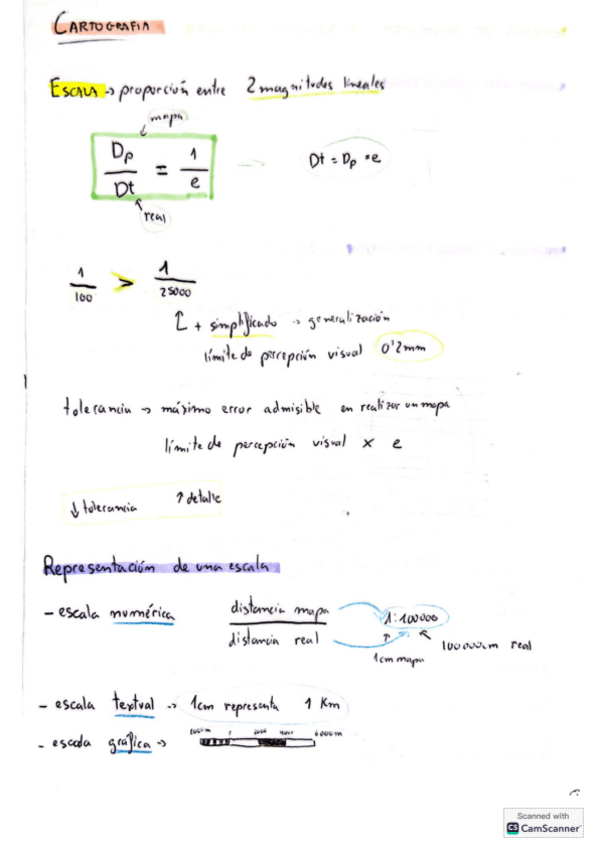 CARTOGRAFIA
ESCALA → proporción entre 2 magnitudes lineales
mapa
Dp / Dt = 1 / e → Dt = Dp * e
real
1/100 > 1/25000
+ simplificado → generalización
límite de percepción visual 0'2mm
tolerancia → máximo error admisible en realizar un mapa
límite de percepción visual x e
↓ tolerancia ↑ detalle
Representación de una escala
- escala numérica distancia mapa / distancia real 1:100000
1cm mapa 100000cm real
- escala textual → 1cm representa 1 Km
- escala gráfica → 0 2000 4000 6000m
Scanned with
CS CamScanner